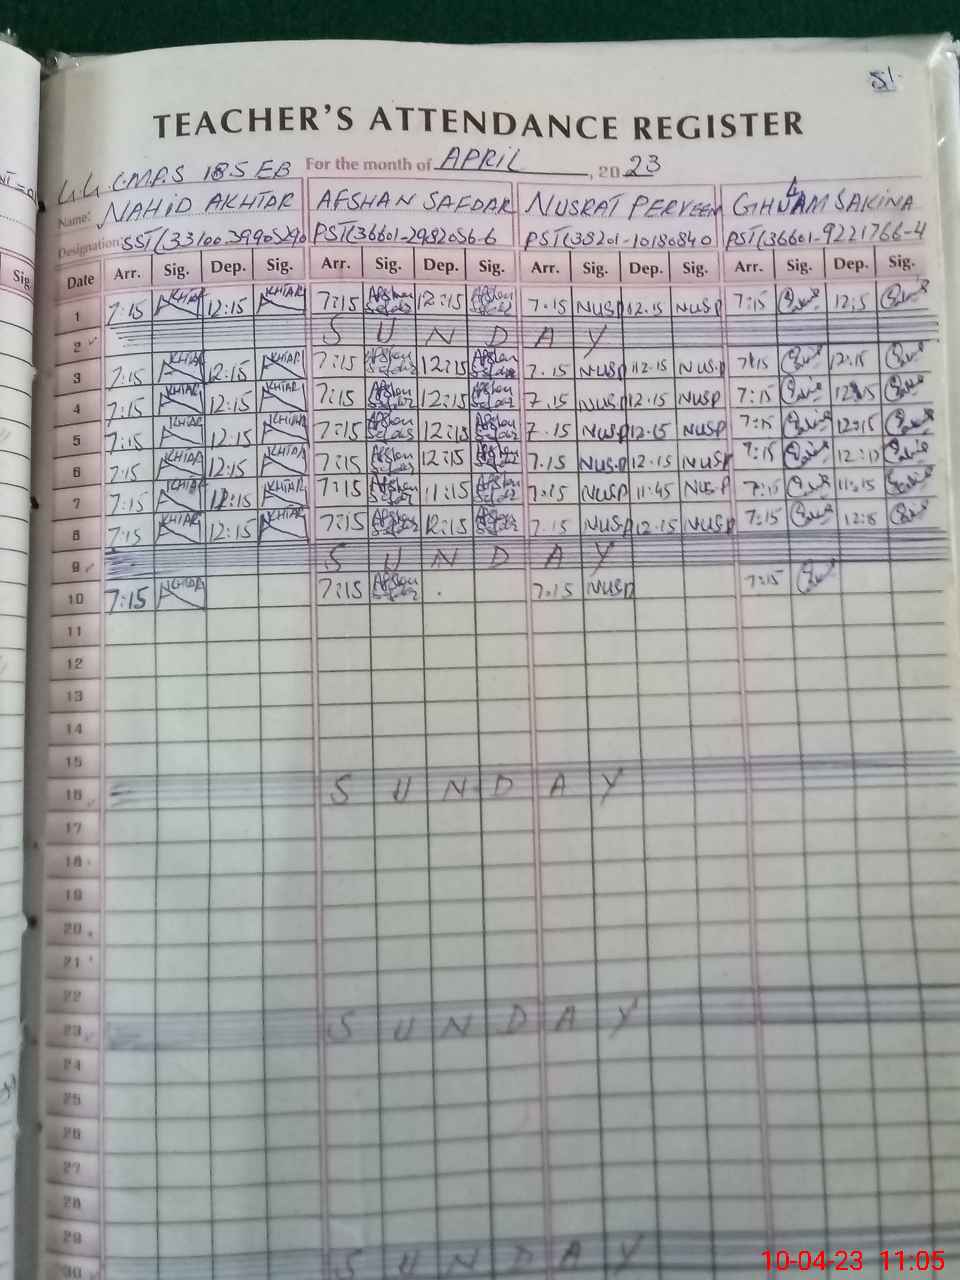 51
TEACHER'S ATTENDANCE REGISTER
G.G.C.M.P.S 185 EB For the month of APRIL, 2023
Name: NAHID AKHTAR AFSHAN SAFDAR NUSRAT PERVEEN GHULAM SAKINA
Designation: SST( PST(36601-2982056-6 PST(38201-10180840 PST(36601-9221766-4
Sig.
Date Arr. Sig. Dep. Sig. Arr. Sig. Dep. Sig. Arr. Sig. Dep. Sig. Arr. Sig. Dep. Sig.
1 7:15 AKHTAR 12:15 AKHTAR 7:15 Afshan Safdar 12:15 Afshan Safdar 7.15 NUSP 12.15 NUSP 7:15 12:15
2 SUNDAY
3 7:15 AKHTAR 12:15 AKHTAR 7:15 Afshan Safdar 12:15 Afshan Safdar 7.15 NUSP 12.15 NUSP 7:15 12:15
4 7:15 AKHTAR 12:15 AKHTAR 7:15 Afshan Safdar 12:15 Afshan Safdar 7.15 NUSP 12.15 NUSP 7:15 12:15
5 7:15 AKHTAR 12:15 AKHTAR 7:15 Afshan Safdar 12:15 Afshan Safdar 7.15 NUSP 12.15 NUSP 7:15 12:15
6 7:15 AKHTAR 12:15 AKHTAR 7:15 Afshan Safdar 12:15 Afshan Safdar 7.15 NUSP 12.15 NUSP 7:15
7 7:15 AKHTAR AKHTAR 7:15 Afshan Safdar 11:15 Afshan Safdar 7.15 NUSP 11:45 NUSP 7:15
8 7:15 AKHTAR 12:15 AKHTAR 7:15 Afshan Safdar 12:15 Afshan Safdar 7.15 NUSP 12.15 NUSP 7:15
9 SUNDAY
10 7:15 AKHTAR 7:15 Afshan Safdar 7.15 NUSP 7:15
11
12
13
14
15
16 SUNDAY
17
18
19
20
21
22
23 SUNDAY
24
25
26
27
28
29
30 SUNDAY
10-04-23 11:05